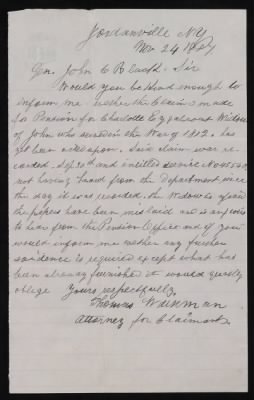 Jordanville N.Y.
Nov 24 1887
Gen. John C Black. Sir
Would you be kind enough to
inform me wether the Claim made
for Pension for Charlotte Widow
of John who served in the War of 1812. has
not been acted upon. Said claim was re
corded. Sep. 30th and entitled service No
not having heard from the Department since
the day it was recorded. the Widow is afraid
the papers have been mislaid and is anxious
to hear from the Pension Office and if you
would inform me wether any further
evidence is required except what has
been already furnished it would greatly
oblige Yours respectfully.
Thomas
Attorney for Claimant.